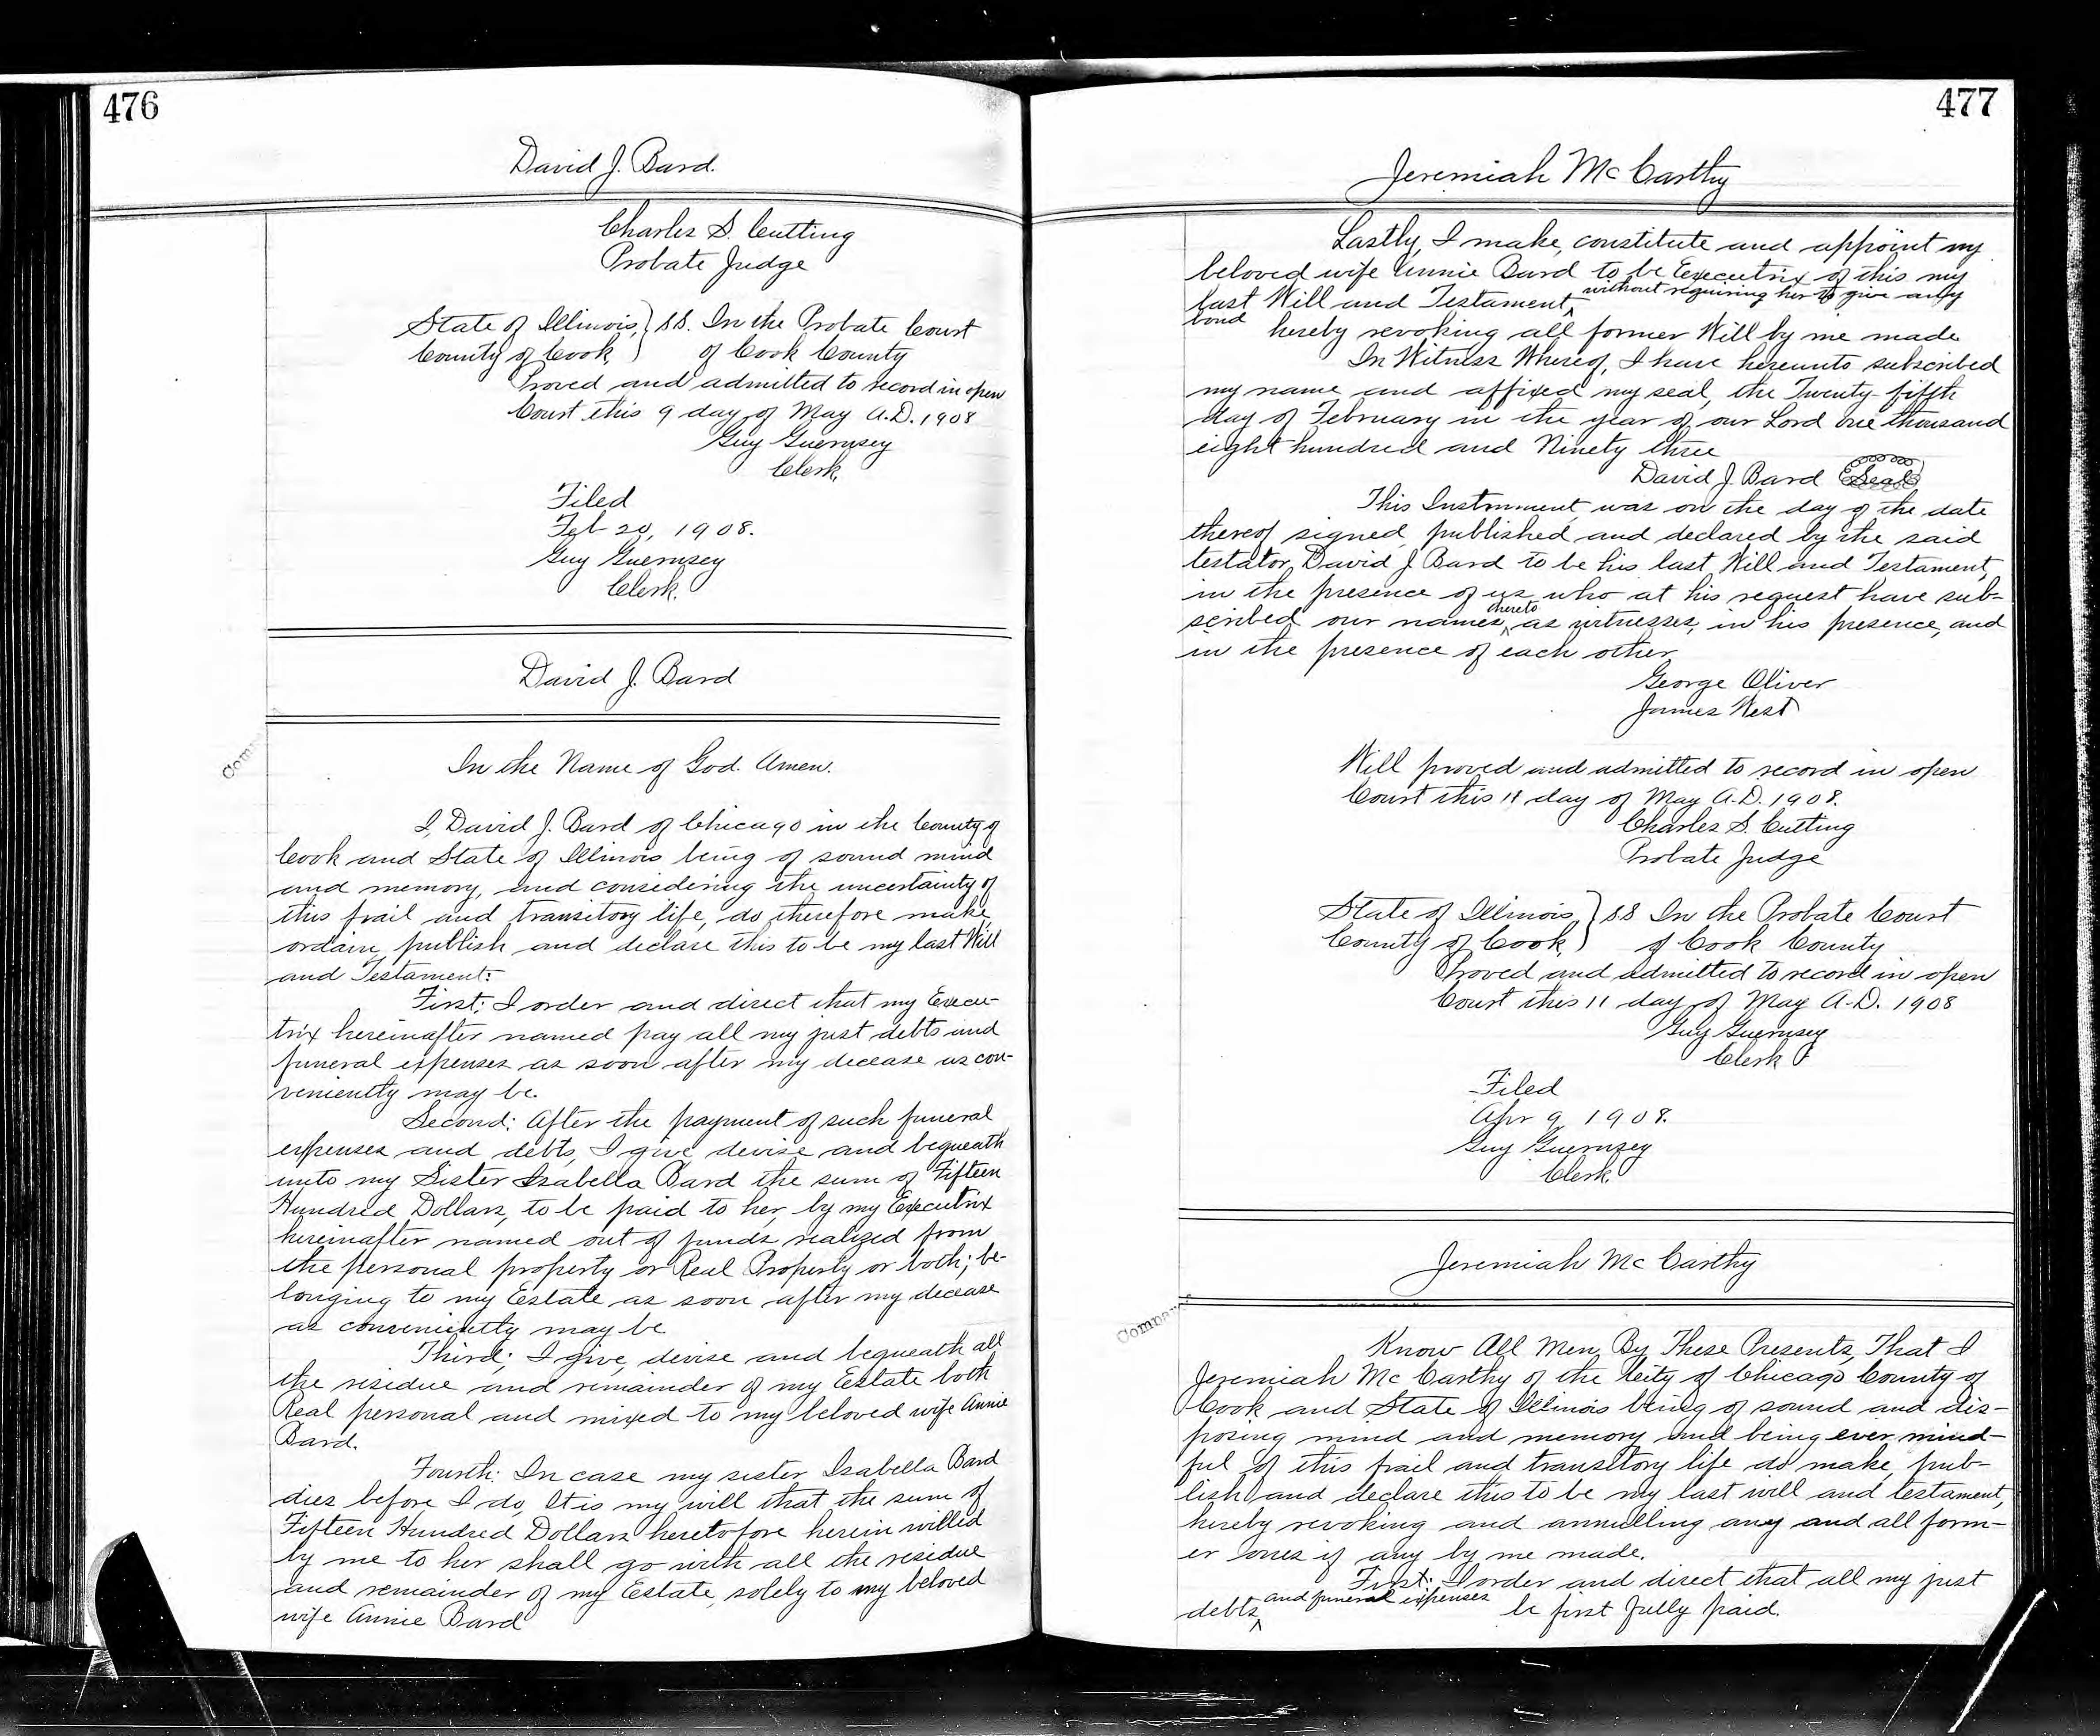 476
David J. Bard.
Charles S. Cutting
Probate Judge
State of Illinois, } SS. In the Probate Court
County of Cook, } of Cook County
Proved and admitted to record in open
Court this 9 day of May A.D. 1908
Guy Guernsey
Clerk.
Filed
Feb 20, 1908.
Guy Guernsey
Clerk.
David J. Bard
In the Name of God. Amen.
I, David J. Bard of Chicago in the County of
Cook and State of Illinois being of sound mind
and memory, and considering the uncertainty of
this frail and transitory life, do therefore make,
ordain, publish and declare this to be my last Will
and Testament:
First: I order and direct that my Execu-
trix hereinafter named pay all my just debts and
funeral expenses as soon after my decease as con-
veniently may be.
Second: After the payment of such funeral
expenses and debts, I give devise and bequeath
unto my Sister Isabella Bard the sum of Fifteen
Hundred Dollars, to be paid to her, by my Executrix
hereinafter named out of funds realized from
the personal property or Real Property or both; be-
longing to my Estate as soon after my decease
as conveniently may be
Third; I give, devise and bequeath all
the residue and remainder of my Estate both
Real personal and mixed to my beloved wife Annie
Bard.
Fourth: In case my sister Isabella Bard
dies before I do, It is my will that the sum of
Fifteen Hundred Dollars heretofore herein willed
by me to her shall go with all the residue
and remainder of my Estate, solely to my beloved
wife Annie Bard
477
Jeremiah McCarthy
Lastly, I make, constitute and appoint my
beloved wife Annie Bard to be Executrix of this my
last Will and Testament ^ without requiring her to give any
bond hereby revoking all former Will by me made
In Witness Whereof, I have hereunto subscribed
my name and affixed my seal, the Twenty-fifth
day of February in the year of our Lord One thousand
eight hundred and Ninety three
David J. Bard (Seal)
This Instrument was on the day of the date
thereof signed published and declared by the said
testator, David J Bard to be his last Will and Testament,
in the presence of us who at his request have sub-
scribed our names ^ thereto as witnesses, in his presence, and
in the presence of each other
George Oliver
James West
Will proved and admitted to record in open
Court this 11 day of May A.D. 1908.
Charles S. Cutting
Probate Judge
State of Illinois, } SS In the Probate Court
County of Cook, } of Cook County
Proved and admitted to record in open
Court this 11 day of May A.D. 1908
Guy Guernsey
Clerk
Filed
Apr 9 1908.
Guy Guernsey
Clerk.
Jeremiah McCarthy
Know All Men By These Presents, That I
Jeremiah McCarthy of the City of Chicago County of
Cook and State of Illinois being of sound and dis-
posing mind and memory and being ever mind-
ful of this frail and transitory life do make, pub-
lish and declare this to be my last will and testament,
hereby revoking and annulling any and all form-
er ones if any by me made.
First: I order and direct that all my just
debts ^ and funeral expenses be first fully paid.